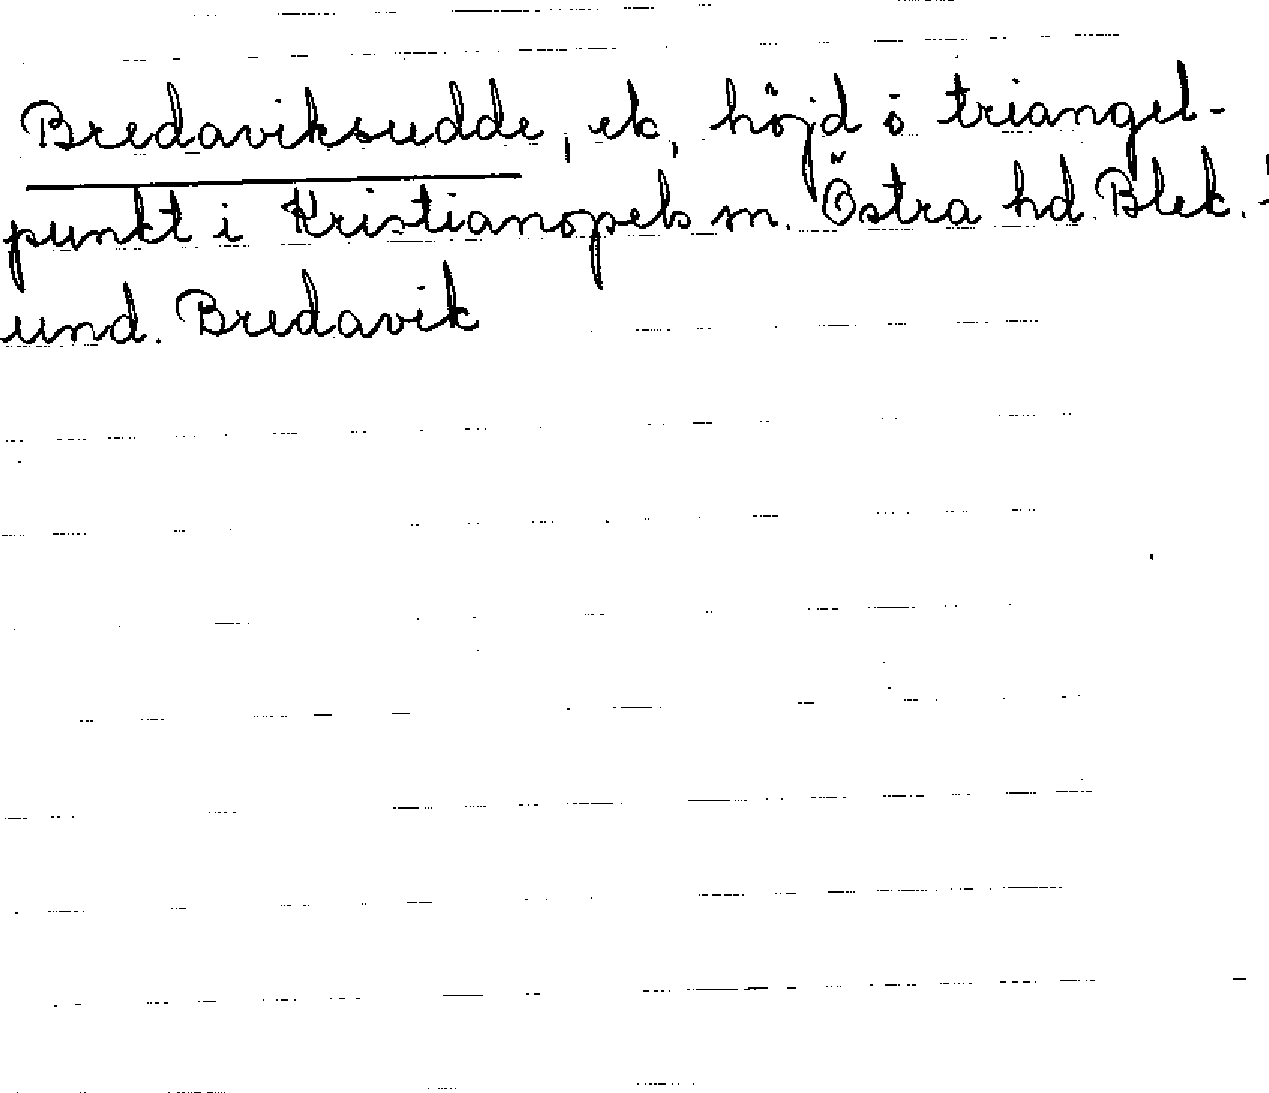 Bredaviksudde, ek, höjd ö triangel-
punkt i Kristianopels sn. Östra hd. Blek.
und. Bredavik